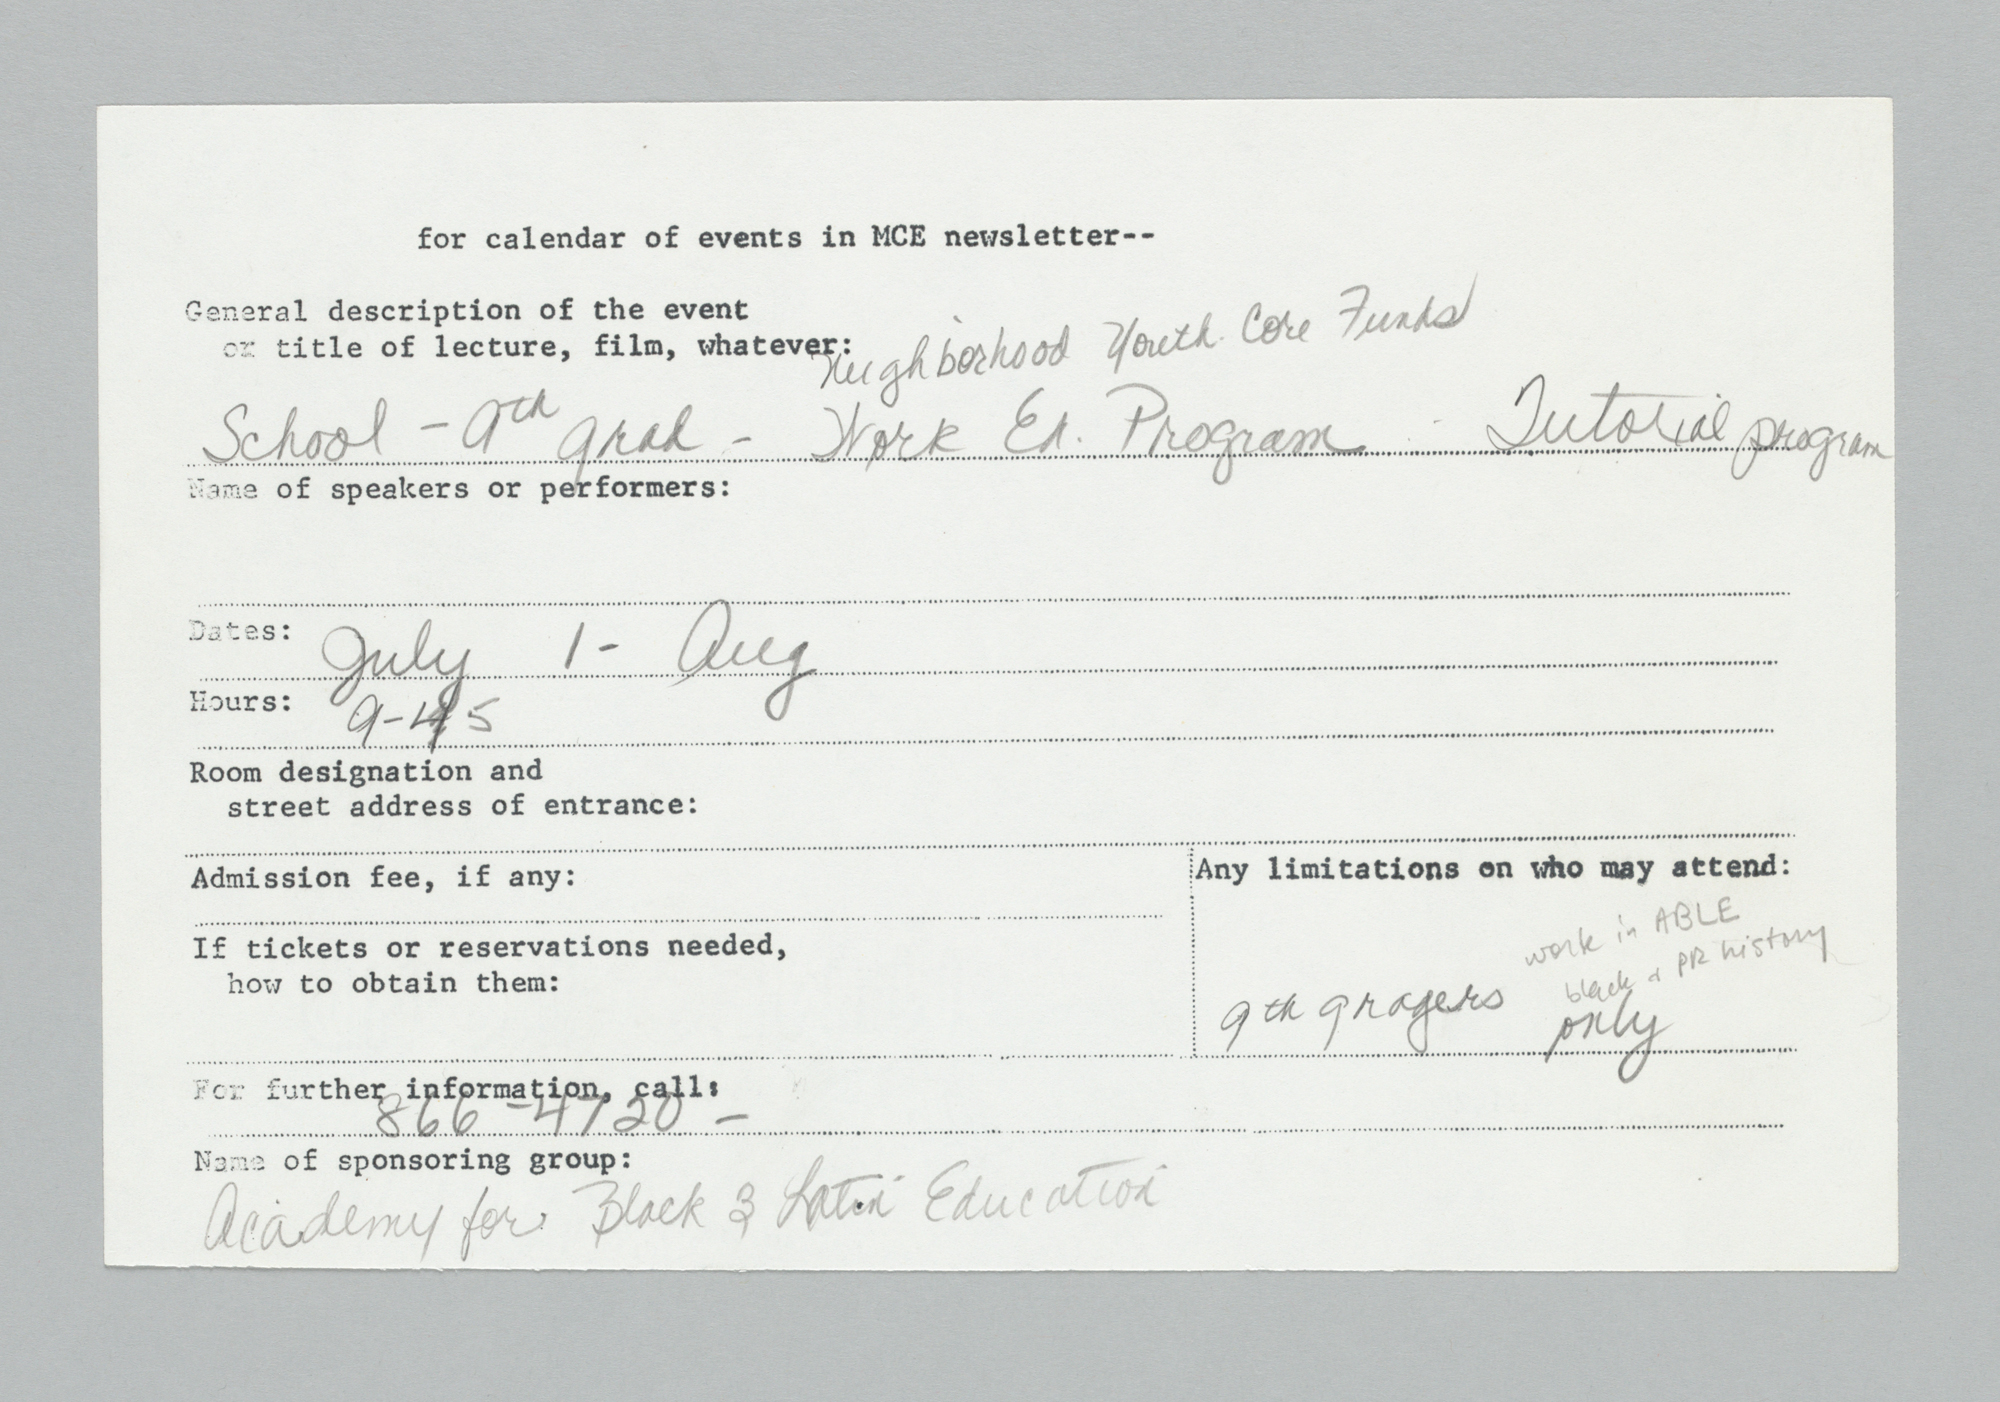 for calendar of events in MCE newsletter--
General description of the event
or title of lecture, film, whatever:
Neighborhood Youth Core Funds
School - 9th grad - Work Ed. Program - Tutorial program
Name of speakers or performers:
Dates: July 1 - Aug
Hours: 9-5
Room designation and
street address of entrance:
Admission fee, if any:
Any limitations on who may attend:
work in ABLE
black & PR history
9th graders only
If tickets or reservations needed,
how to obtain them:
For further information, call:
866-4720 -
Name of sponsoring group:
Academy for Black & Latin Education